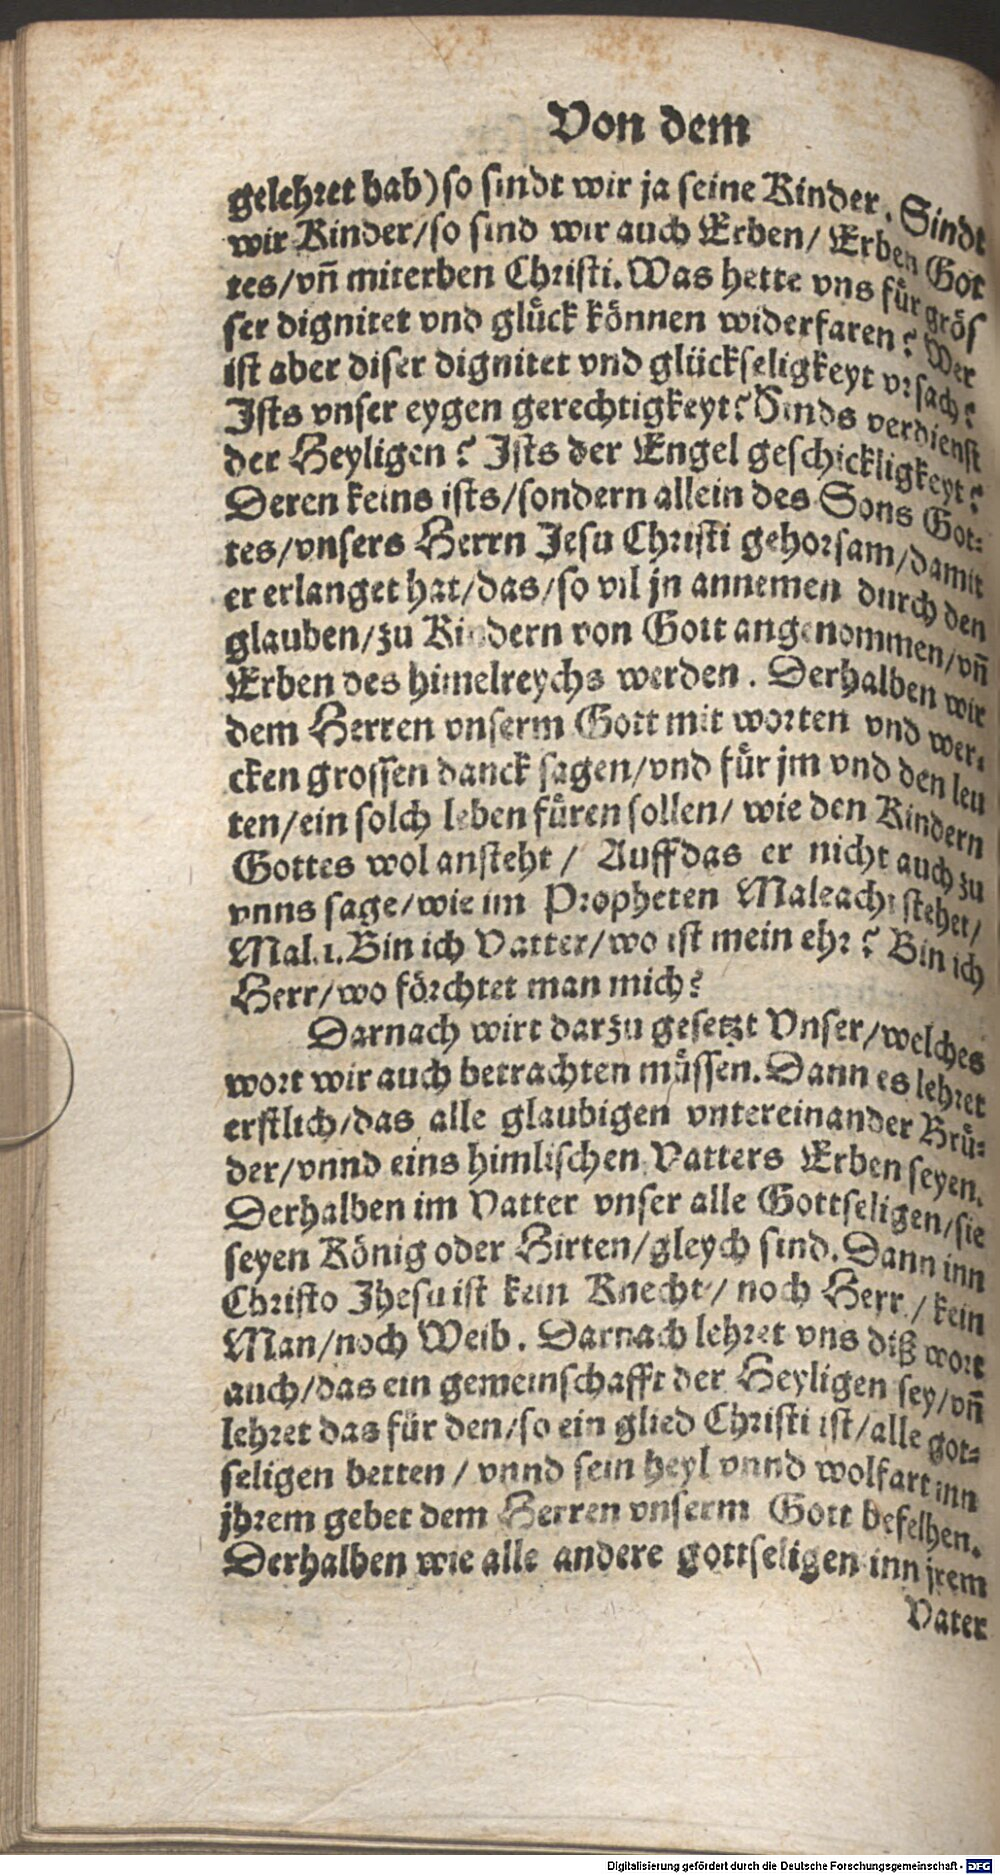 Von dem
gelehret hab) so sindt wir ja seine Kinder. Sindt
wir Kinder/so sind wir auch Erben/ Erben Got
tes/vñ miterben Christi. Was hette vns für grös
ser dignitet vnd glück können widerfaren? Wer
ist aber diser dignitet vnd glückseligkeyt vrsach?
Ists vnser eygen gerechtigkeyt? Sinds verdienst
der Heyligen? Ists der Engel geschickligkeyt?
Deren keins ists/sondern allein des Sons Got-
tes/vnsers Herrn Jesu Christi gehorsam/damit
er erlanget hat/das/so vil jn annemen durch den
glauben/zu Kindern von Gott angenommen/vñ
Erben des himelreychs werden. Derhalben wir
dem Herren vnserm Gott mit worten vnd wer-
cken grossen danck sagen/vnd für jm vnd den leu
ten/ein solch leben füren sollen/ wie den Kindern
Gottes wol ansteht / Auff das er nicht auch zu
vnns sage/wie im Propheten Maleachi stehet/
Mal.1. Bin ich Vatter/wo ist mein ehr? Bin ich
Herr/wo förchtet man mich?
Darnach wirt darzu gesetzt Vnser/welches
wort wir auch betrachten müssen. Dann es lehret
erstlich/das alle glaubigen vntereinander Brü-
der/vnnd eins himlischen Vatters Erben seyen.
Derhalben im Vatter vnser alle Gottseligen/sie
seyen König oder Hirten/gleych sind. Dann inn
Christo Jhesu ist kein Knecht/ noch Herr/ kein
Man/noch Weib. Darnach lehret vns diß wort
auch/das ein gemeinschafft der Heyligen sey/vñ
lehret das für den/so ein glied Christi ist/alle got-
seligen betten / vnnd sein heyl vnnd wolfart inn
jhrem gebet dem Herren vnserm Gott befelhen.
Derhalben wie alle andere gottseligen inn jrem
Vater
Digitalisierung gefördert durch die Deutsche Forschungsgemeinschaft - DFG